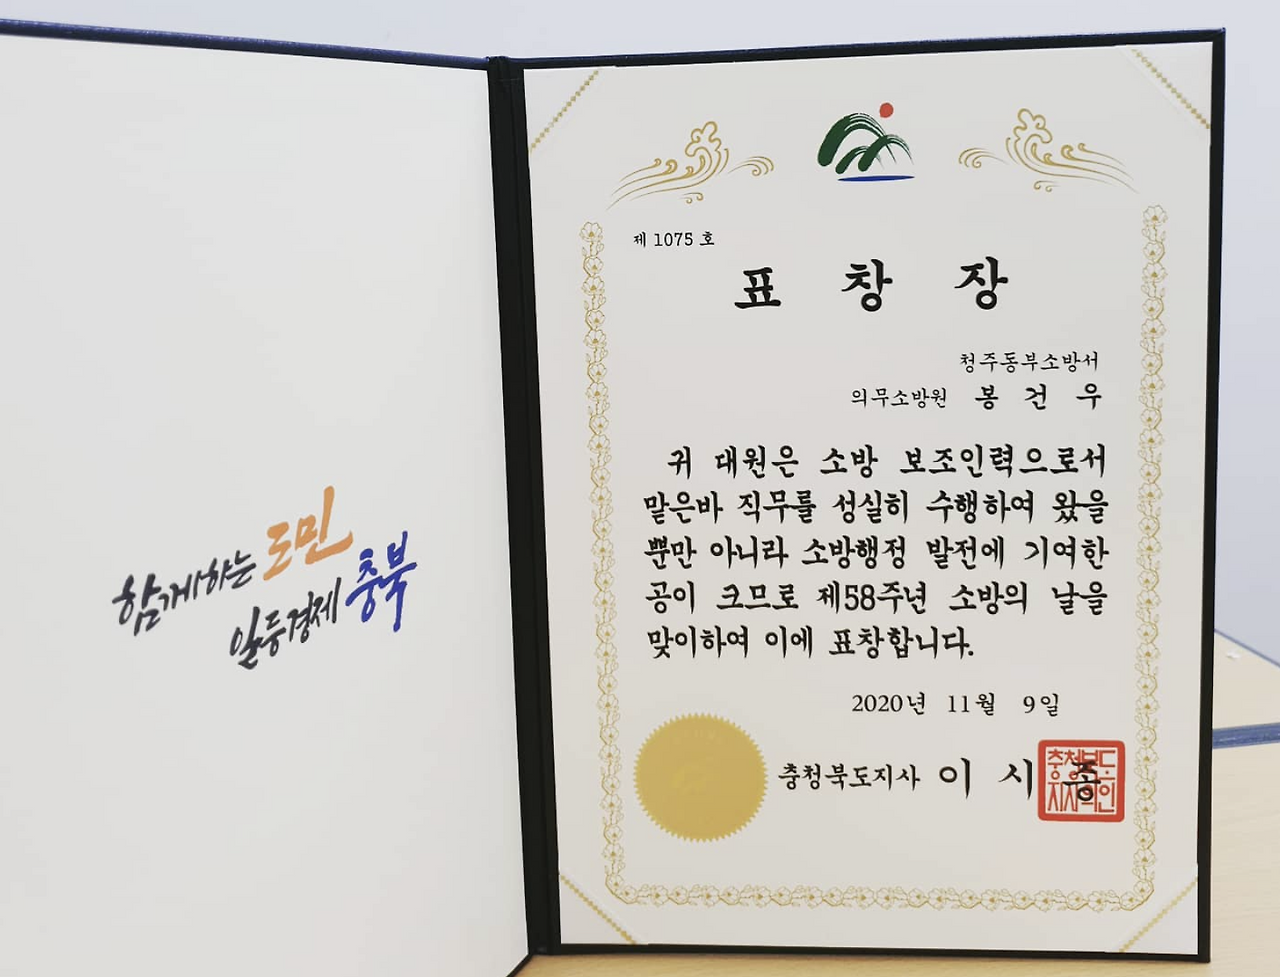 함께하는 도민
일등경제 충북
제 1075 호
표 창 장
청주동부소방서
의무소방원 봉 건 우
귀 대원은 소방 보조인력으로서
맡은바 직무를 성실히 수행하여 왔을
뿐만 아니라 소방행정 발전에 기여한
공이 크므로 제58주년 소방의 날을
맞이하여 이에 표창합니다.
2020년 11월 9일
충청북도지사 이 시 종
충청북도
지사의인